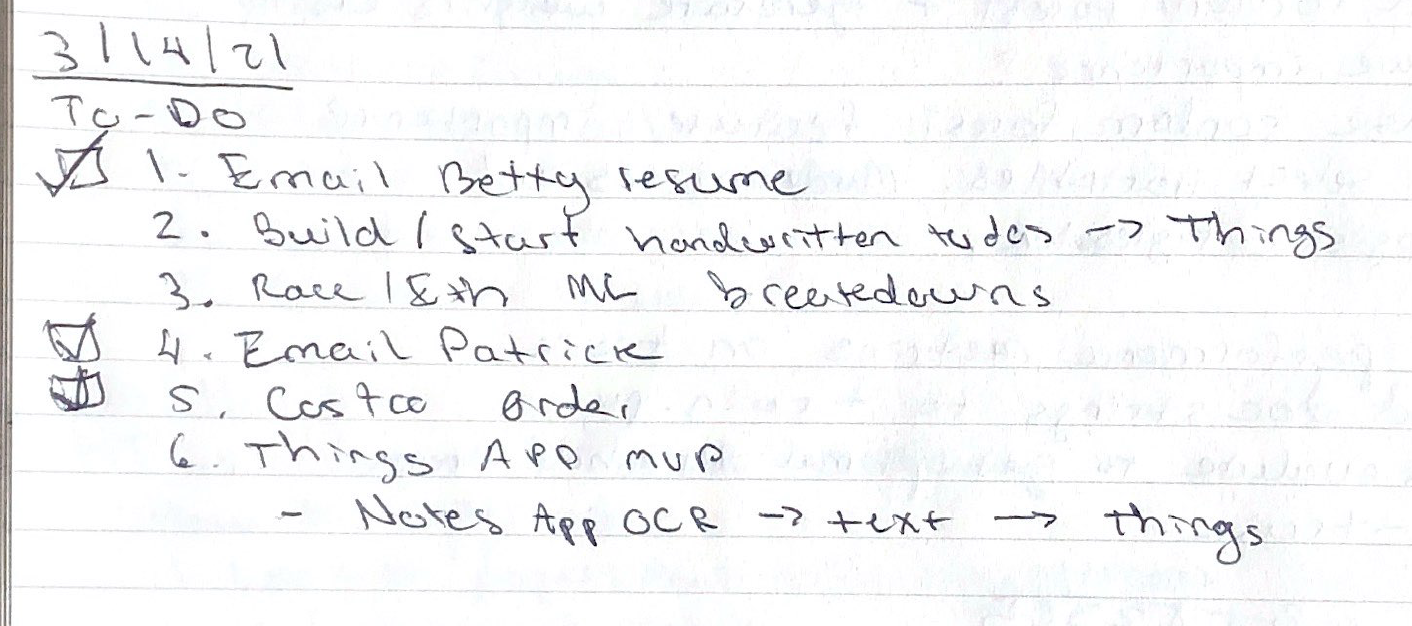 3/14/21
To-Do
☑ 1. Email Betty resume
2. Build / Start handwritten todos -> Things
3. Race / Eth ML breakdowns
☑ 4. Email Patrick
☑ 5. Costco order
6. Things App MVP
- Notes App OCR -> text -> things